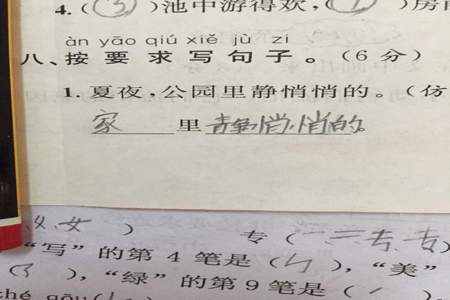 4. (3)池中游得欢,(1)房
àn yāo qiú xiě jù zi
八、按要求写句子。(6分)
1. 夏夜,公园里静悄悄的。(仿
家里静悄悄的。
女) 专(一二专专)
“写”的第4笔是(ㄣ),“美”
(),“绿”的第9笔是(
thé gāu(